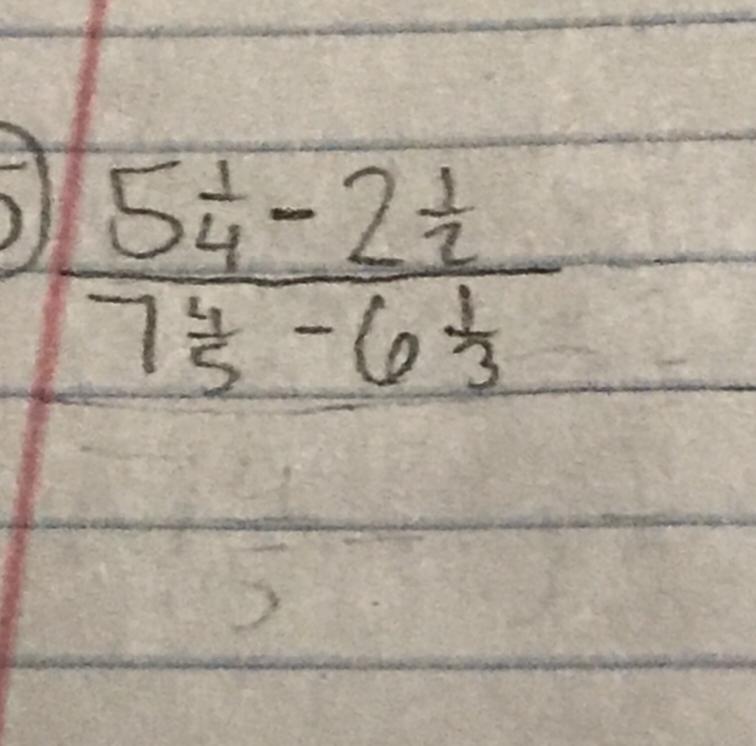 5) 5 1/4 - 2 1/2
7 4/5 - 6 1/3
5